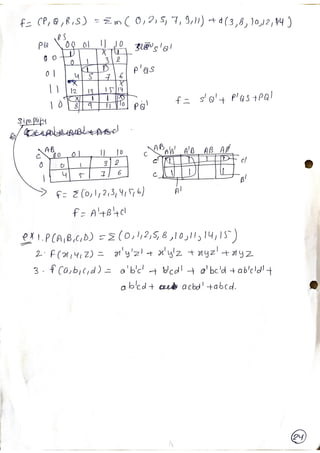 f= (P,Q,R,S) = Σm( 0,2,5,7,9,11) + d(3,8,10,12,14)
RS
PQ 00 01 11 10
00 0 1 3 2
S'Q'
01 4 5 7 6
P'QS
11 12 13 15 14
10 8 9 11 10
PQ'
f = S'Q' + P'QS + PQ'
AB
C 00 01 11 10
0 0 1 3 2
1 4 5 7 6
AB
C A'B' A'B AB AB'
C'
C
A'
B'
f= Σ(0,1,2,3,4,5,6)
f= A'+B'+C'
ex 1. P(A,B,C,D) = Σ(0,1,2,5,8,10,11,14,15)
2. F(x,y,z) = x'y'z' + x'y'z + xyz' + xyz
3. f(a,b,c,d) = a'b'c' + b'cd' + a'bc'd + ab'c'd' +
ab'cd + acbd' + abcd.
24